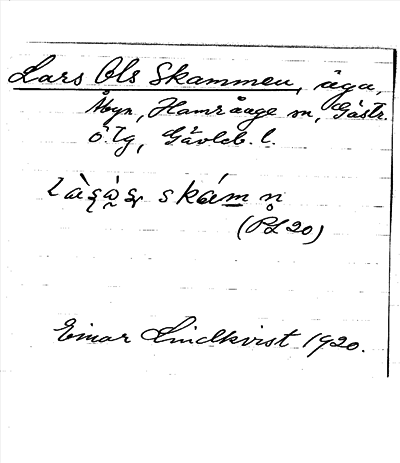 Lars Ols Skammen, äga,
Åbyn, Hamrånge sn, Gästr.
ö. tg, Gävleb. l.
làsàs skámn
(PL 20)
Einar Lindkvist 1920.